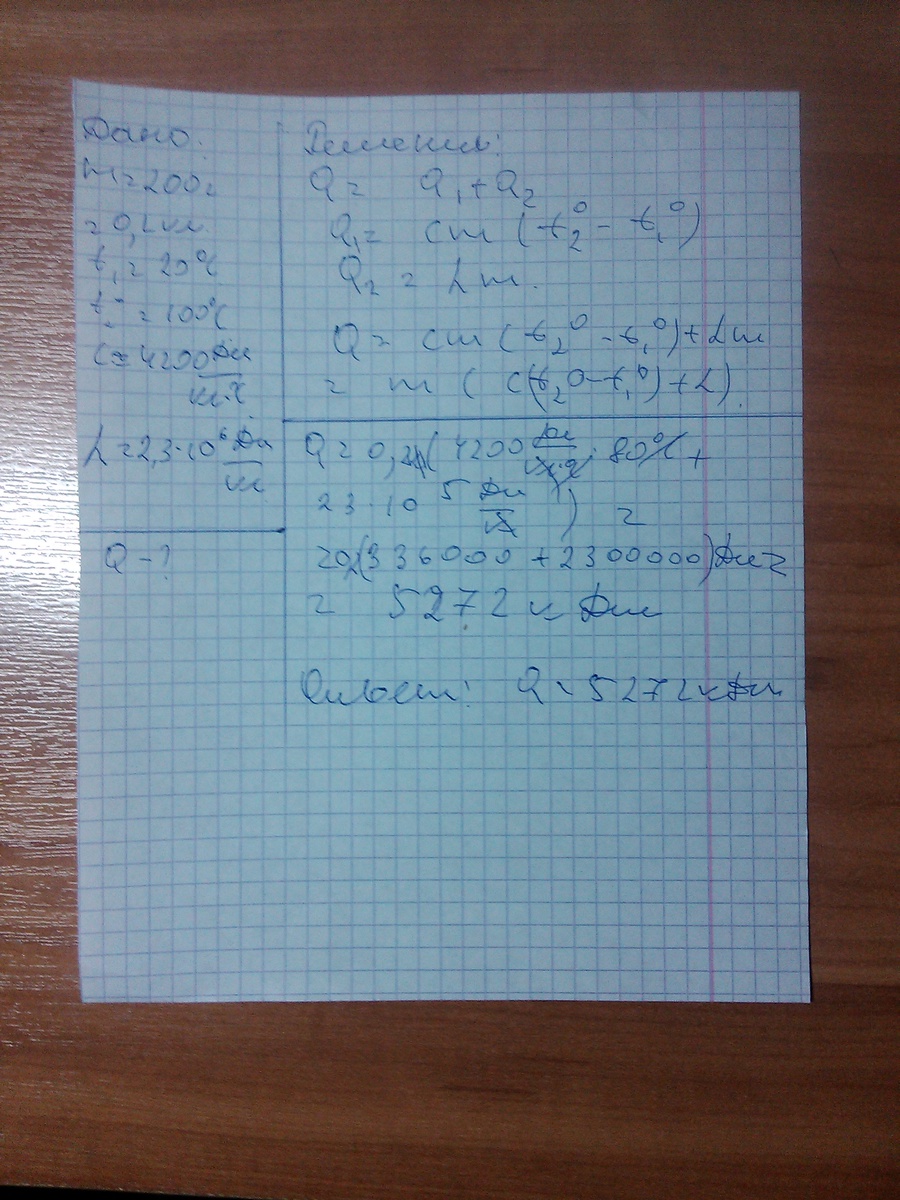 Дано:
m = 200г
= 0,2кг
t₁ = 20°C
t₂ = 100°C
c = 4200 Дж/кг·°C
L = 2,3·10⁶ Дж/кг
Q - ?
Решение:
Q = Q₁ + Q₂
Q₁ = cm (t₂° - t₁°)
Q₂ = Lm.
Q = cm (t₂° - t₁°) + Lm
= m (c(t₂° - t₁°) + L).
Q = 0,2 (4200 Дж/кг·°C · 80°C +
23·10⁵ Дж/кг) =
= 0,2(336000 + 2300000) Дж =
= 5272 кДж
Ответ: Q = 5272 кДж